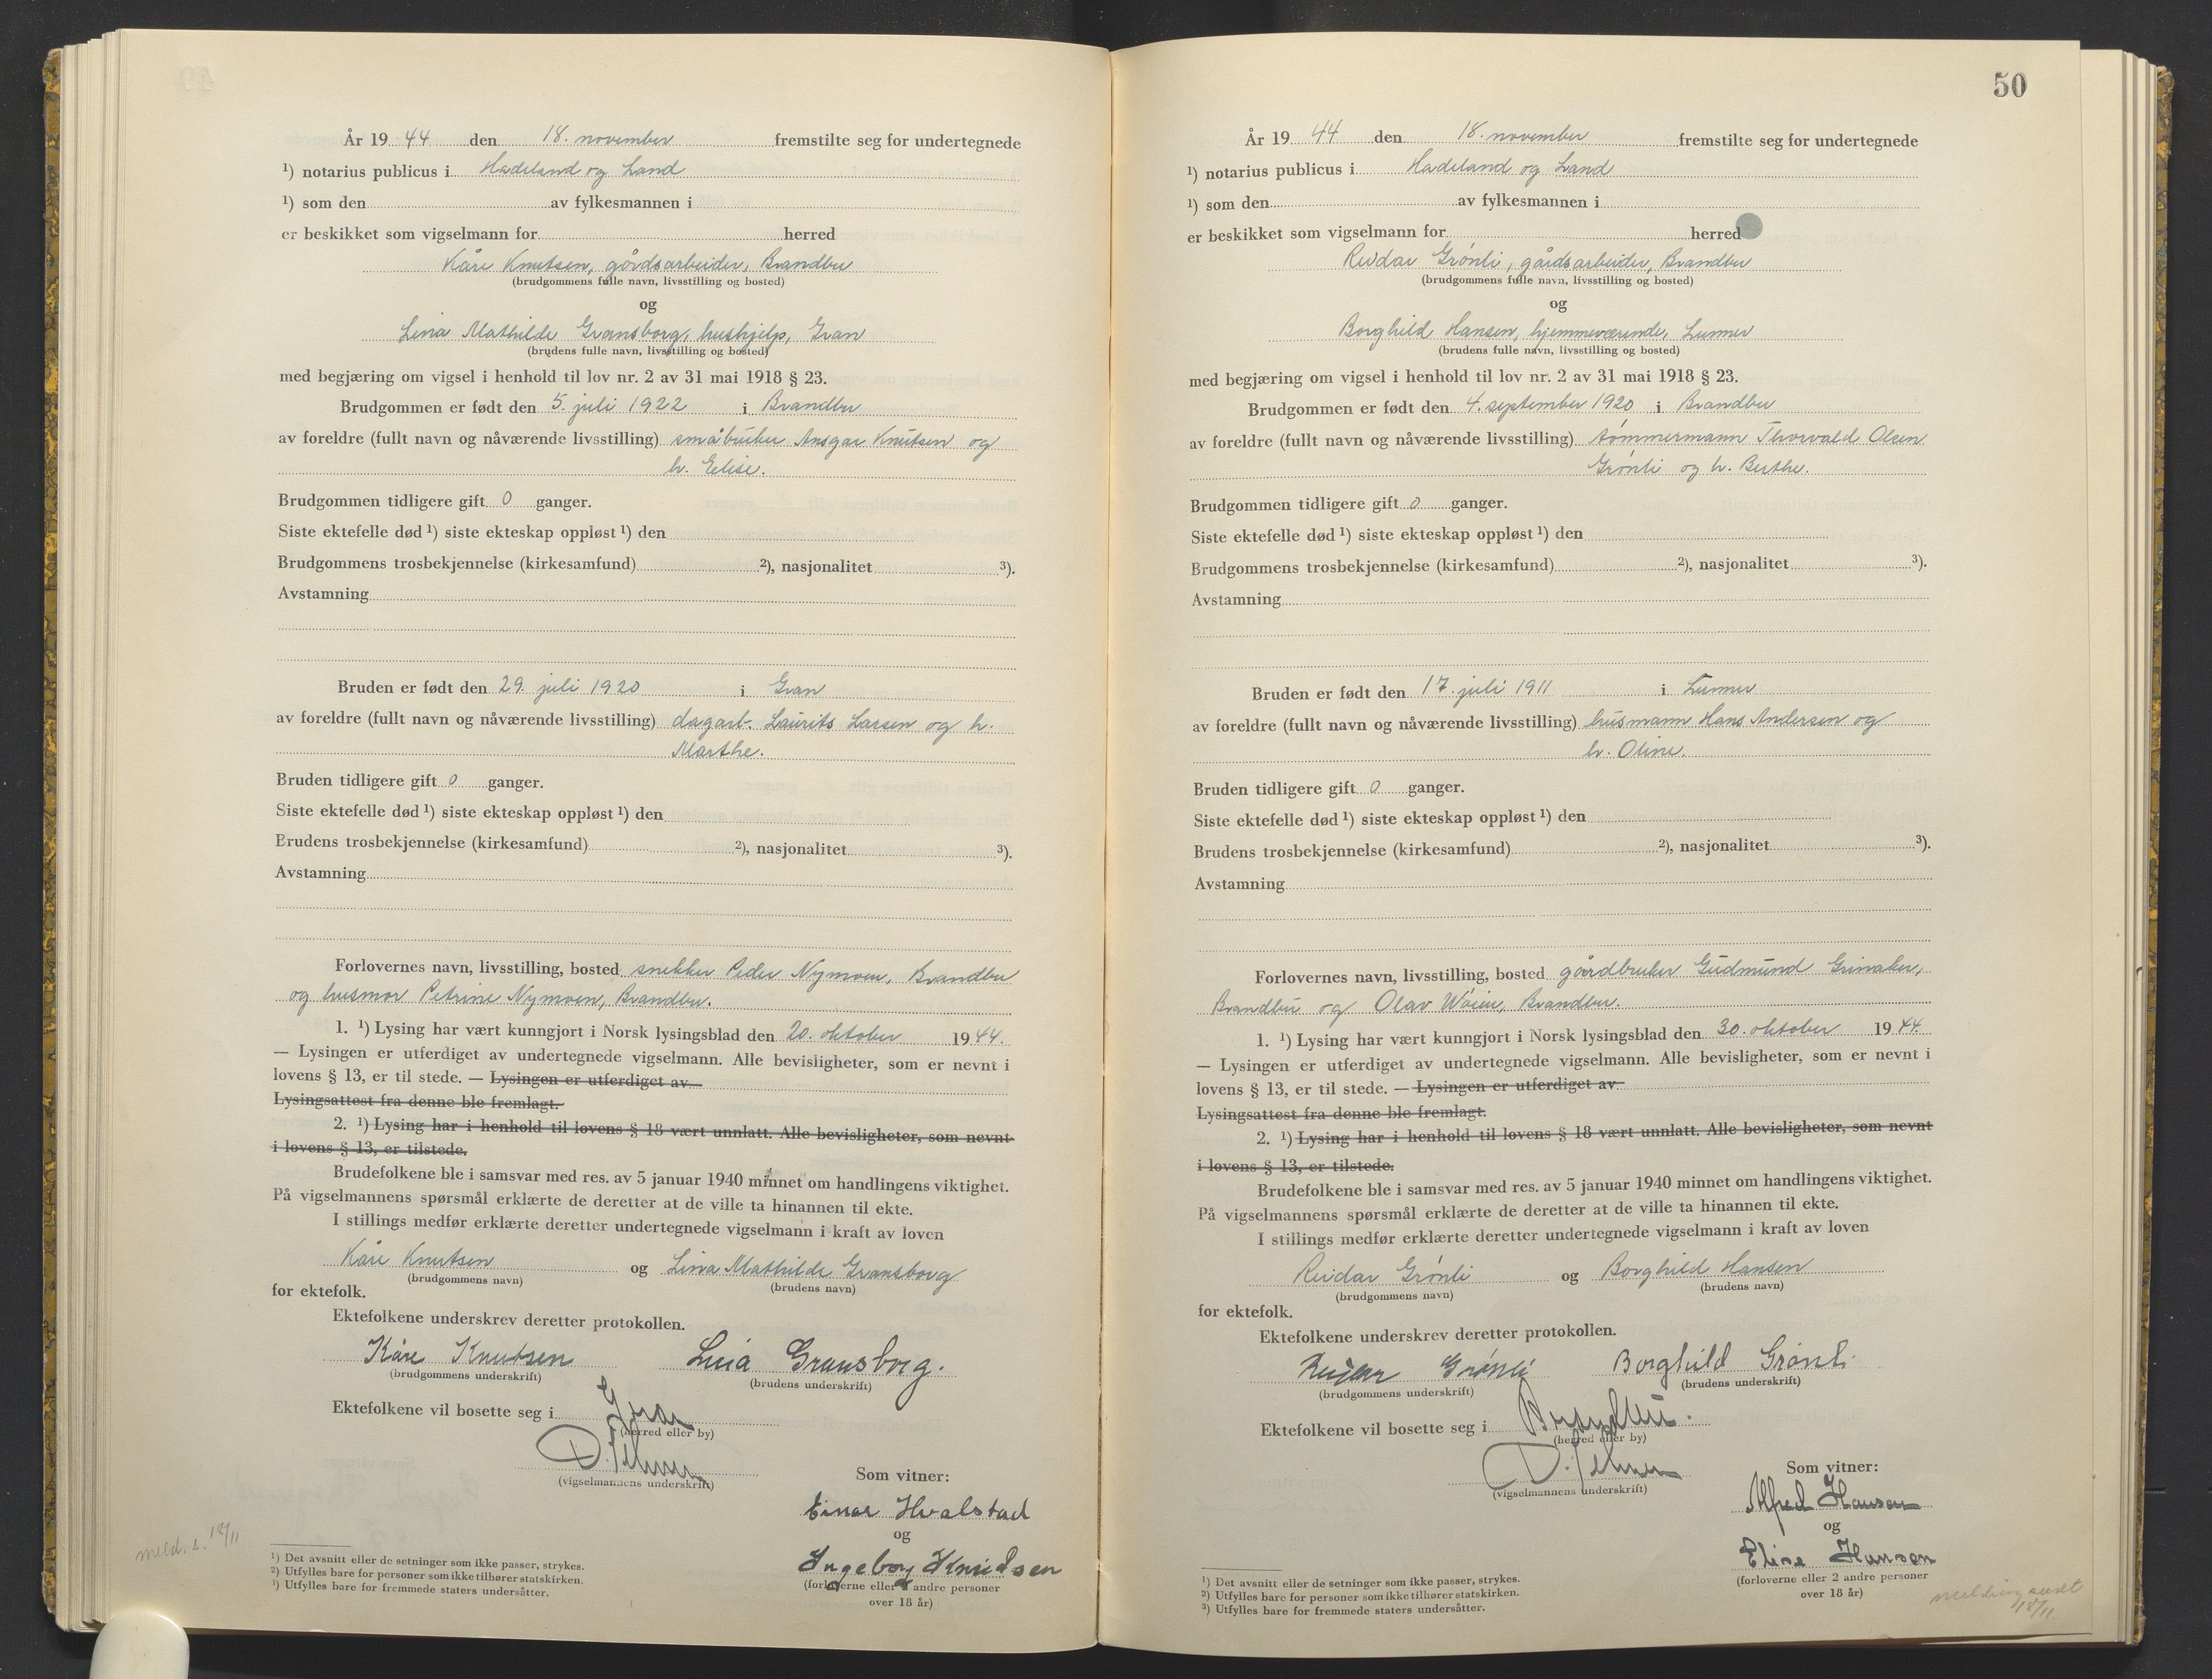 År 19 44 den 18. november fremstilte seg for undertegnede
¹) notarius publicus i Hadeland og Land
¹) som den av fylkesmannen i
er beskikket som vigselmann for herred
Kåre Knutsen, gårdsarbeider, Brandbu
(brudgommens fulle navn, livsstilling og bosted)
og
Lina Mathilde Gransborg, hushjelp, Gran
(brudens fulle navn, livsstilling og bosted)
med begjæring om vigsel i henhold til lov nr. 2 av 31 mai 1918 § 23.
Brudgommen er født den 5. juli 1922 i Brandbu
av foreldre (fullt navn og nåværende livsstilling) småbruker Ansgar Knutsen og
h. Elise.
Brudgommen tidligere gift 0 ganger.
Siste ektefelle død ¹) siste ekteskap oppløst ¹) den
Brudgommens trosbekjennelse (kirkesamfund) ²), nasjonalitet ³).
Avstamning
Bruden er født den 29. juli 1920 i Gran
av foreldre (fullt navn og nåværende livsstilling) dagarb. Laurits Larsen og h.
Marthe.
Bruden tidligere gift 0 ganger.
Siste ektefelle død ¹) siste ekteskap oppløst ¹) den
Brudens trosbekjennelse (kirkesamfund) ²), nasjonalitet ³).
Avstamning
Forlovernes navn, livsstilling, bosted snekker Peder Nymoen, Brandbu
og husmor Petrine Nymoen, Brandbu.
1. ¹) Lysing har vært kunngjort i Norsk lysingsblad den 20. oktober 19 44.
— Lysingen er utferdiget av undertegnede vigselmann. Alle bevisligheter, som er nevnt i
lovens § 13, er til stede. — Lysingen er utferdiget av
Lysingsattest fra denne ble fremlagt.
2. ¹) Lysing har i henhold til lovens § 18 vært unnlatt. Alle bevisligheter, som nevnt
i lovens § 13, er tilstede.
Brudefolkene ble i samsvar med res. av 5 januar 1940 minnet om handlingens viktighet.
På vigselmannens spørsmål erklærte de deretter at de ville ta hinannen til ekte.
I stillings medfør erklærte deretter undertegnede vigselmann i kraft av loven
Kåre Knutsen og Lina Mathilde Gransborg
(brudgommens navn) (brudens navn)
for ektefolk.
Ektefolkene underskrev deretter protokollen.
Kåre Knutsen Lina Gransborg.
(brudgommens underskrift) (brudens underskrift)
Ektefolkene vil bosette seg i Gran
(herred eller by)
(vigselmannens underskrift)
Som vitner:
Einar Hvalstad
og
Ingeborg Knudsen
(forloverne eller 2 andre personer
over 18 år)
meld. s. 18/11
¹) Det avsnitt eller de setninger som ikke passer, strykes.
²) Utfylles bare for personer som ikke tilhører statskirken.
³) Utfylles bare for fremmede staters undersåtter.
50
År 19 44 den 18. november fremstilte seg for undertegnede
¹) notarius publicus i Hadeland og Land
¹) som den av fylkesmannen i
er beskikket som vigselmann for herred
Reidar Grønli, gårdsarbeider, Brandbu
(brudgommens fulle navn, livsstilling og bosted)
og
Borghild Hansen, hjemmeværende, Lunner
(brudens fulle navn, livsstilling og bosted)
med begjæring om vigsel i henhold til lov nr. 2 av 31 mai 1918 § 23.
Brudgommen er født den 4. september 1920 i Brandbu
av foreldre (fullt navn og nåværende livsstilling) tømmermann Thorvald Olsen
Grønli og h. Berthe.
Brudgommen tidligere gift 0 ganger.
Siste ektefelle død ¹) siste ekteskap oppløst ¹) den
Brudgommens trosbekjennelse (kirkesamfund) ²), nasjonalitet ³).
Avstamning
Bruden er født den 17. juli 1911 i Lunner
av foreldre (fullt navn og nåværende livsstilling) husmann Hans Andersen og
h. Oline.
Bruden tidligere gift 0 ganger.
Siste ektefelle død ¹) siste ekteskap oppløst ¹) den
Brudens trosbekjennelse (kirkesamfund) ²), nasjonalitet ³).
Avstamning
Forlovernes navn, livsstilling, bosted gårdbruker Gudmund Grinaker,
Brandbu og Olav Wøien, Brandbu.
1. ¹) Lysing har vært kunngjort i Norsk lysingsblad den 30. oktober 19 44
— Lysingen er utferdiget av undertegnede vigselmann. Alle bevisligheter, som er nevnt i
lovens § 13, er til stede. — Lysingen er utferdiget av
Lysingsattest fra denne ble fremlagt.
2. ¹) Lysing har i henhold til lovens § 18 vært unnlatt. Alle bevisligheter, som nevnt
i lovens § 13, er tilstede.
Brudefolkene ble i samsvar med res. av 5 januar 1940 minnet om handlingens viktighet.
På vigselmannens spørsmål erklærte de deretter at de ville ta hinannen til ekte.
I stillings medfør erklærte deretter undertegnede vigselmann i kraft av loven
Reidar Grønli og Borghild Hansen
(brudgommens navn) (brudens navn)
for ektefolk.
Ektefolkene underskrev deretter protokollen.
Reidar Grønli Borghild Grønli
(brudgommens underskrift) (brudens underskrift)
Ektefolkene vil bosette seg i Brandbu.
(herred eller by)
(vigselmannens underskrift)
Som vitner:
Alfred Hansen
og
Elise Hansen
(forloverne eller 2 andre personer
over 18 år)
melding sendt
18/11
¹) Det avsnitt eller de setninger som ikke passer, strykes.
²) Utfylles bare for personer som ikke tilhører statskirken.
³) Utfylles bare for fremmede staters undersåtter.